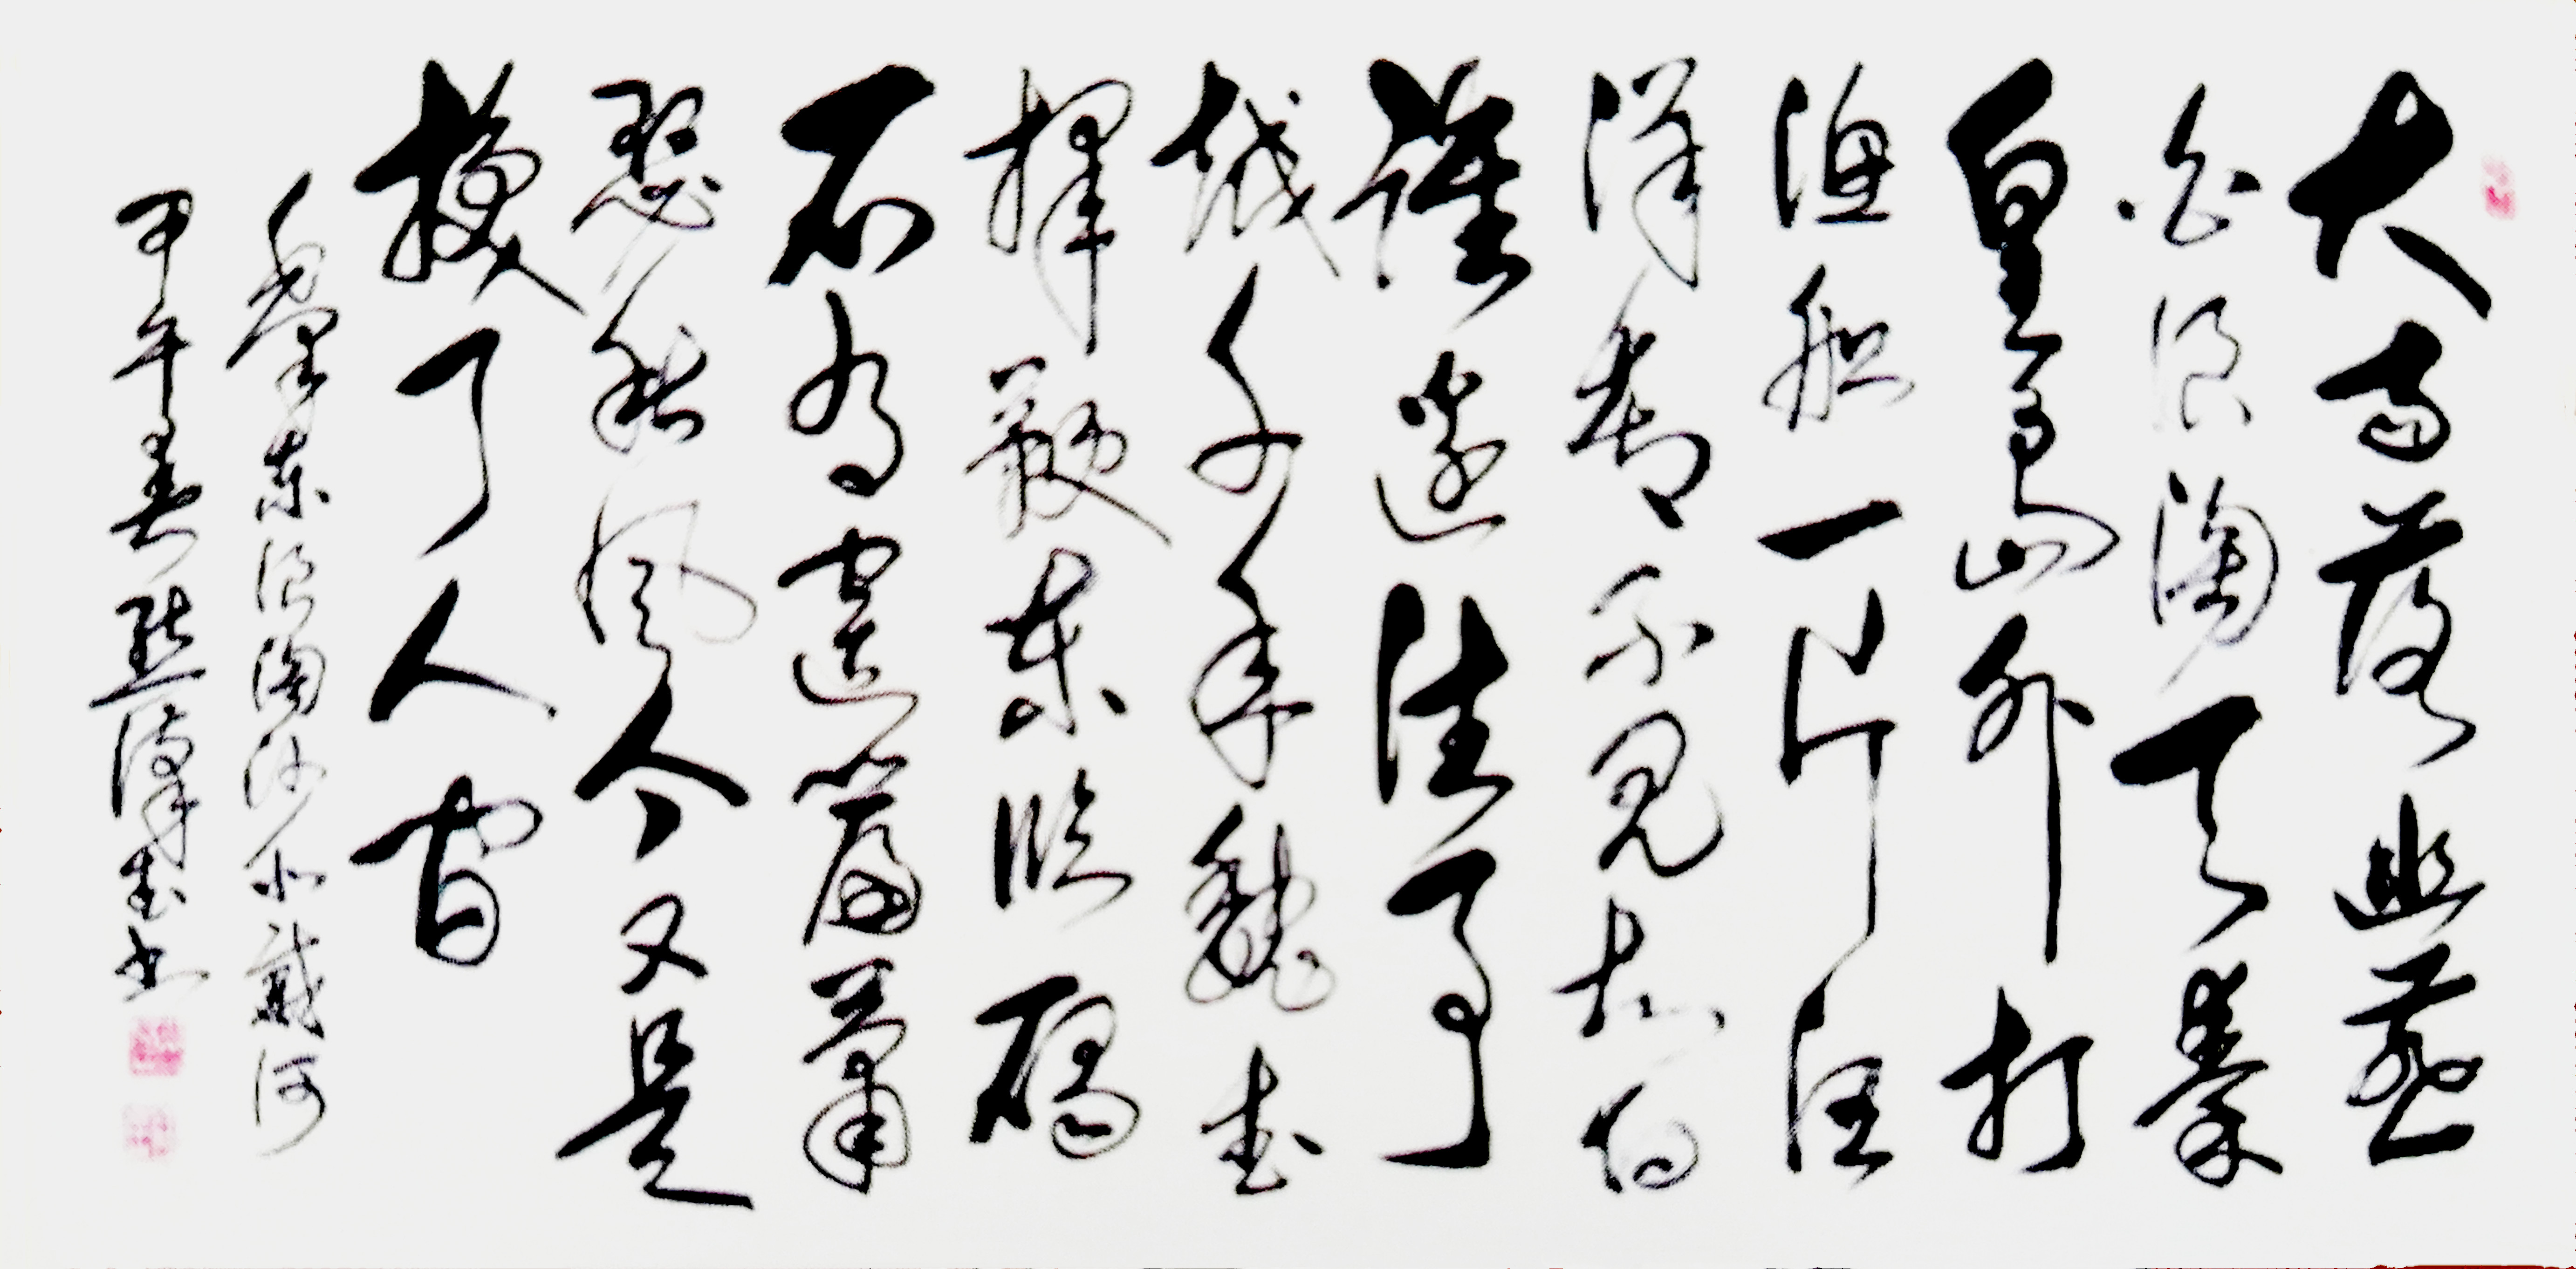 大雨落幽燕
白浪滔天秦
皇島外打
渔船一片汪
洋都不见知向
誰邊往事
越千年魏武
揮鞭东临碣
石有遗篇萧
瑟秋风今又是
换了人间
毛泽东浪淘沙北戴河
甲午春泽武书